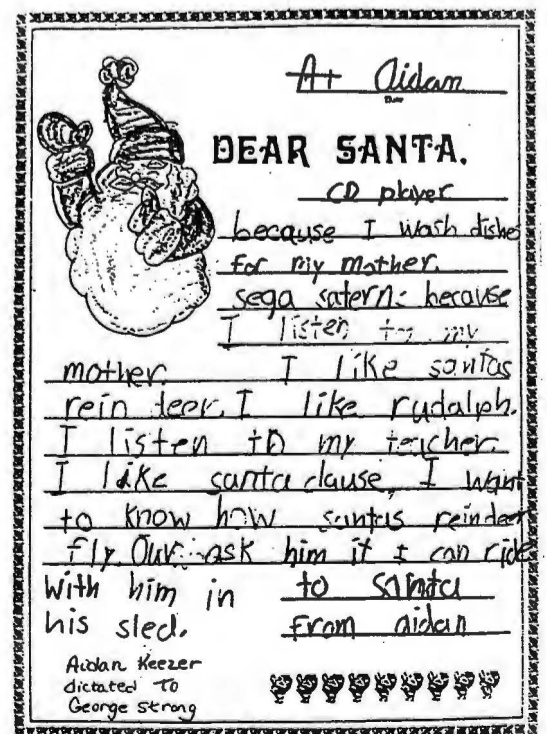 A+ Aidan
DEAR SANTA.
CD player
because I wash dishe
for my mother.
sega satern: because
I listen to my
mother. I like santas
rein deer. I like rudalph.
I listen to my teacher.
I like santa clause, I want
to know how santas reindeer
fly. ask him if I can ride
With him in
his sled.
to santa
from aidan
Aidan Keezer
dictated To
George Strong